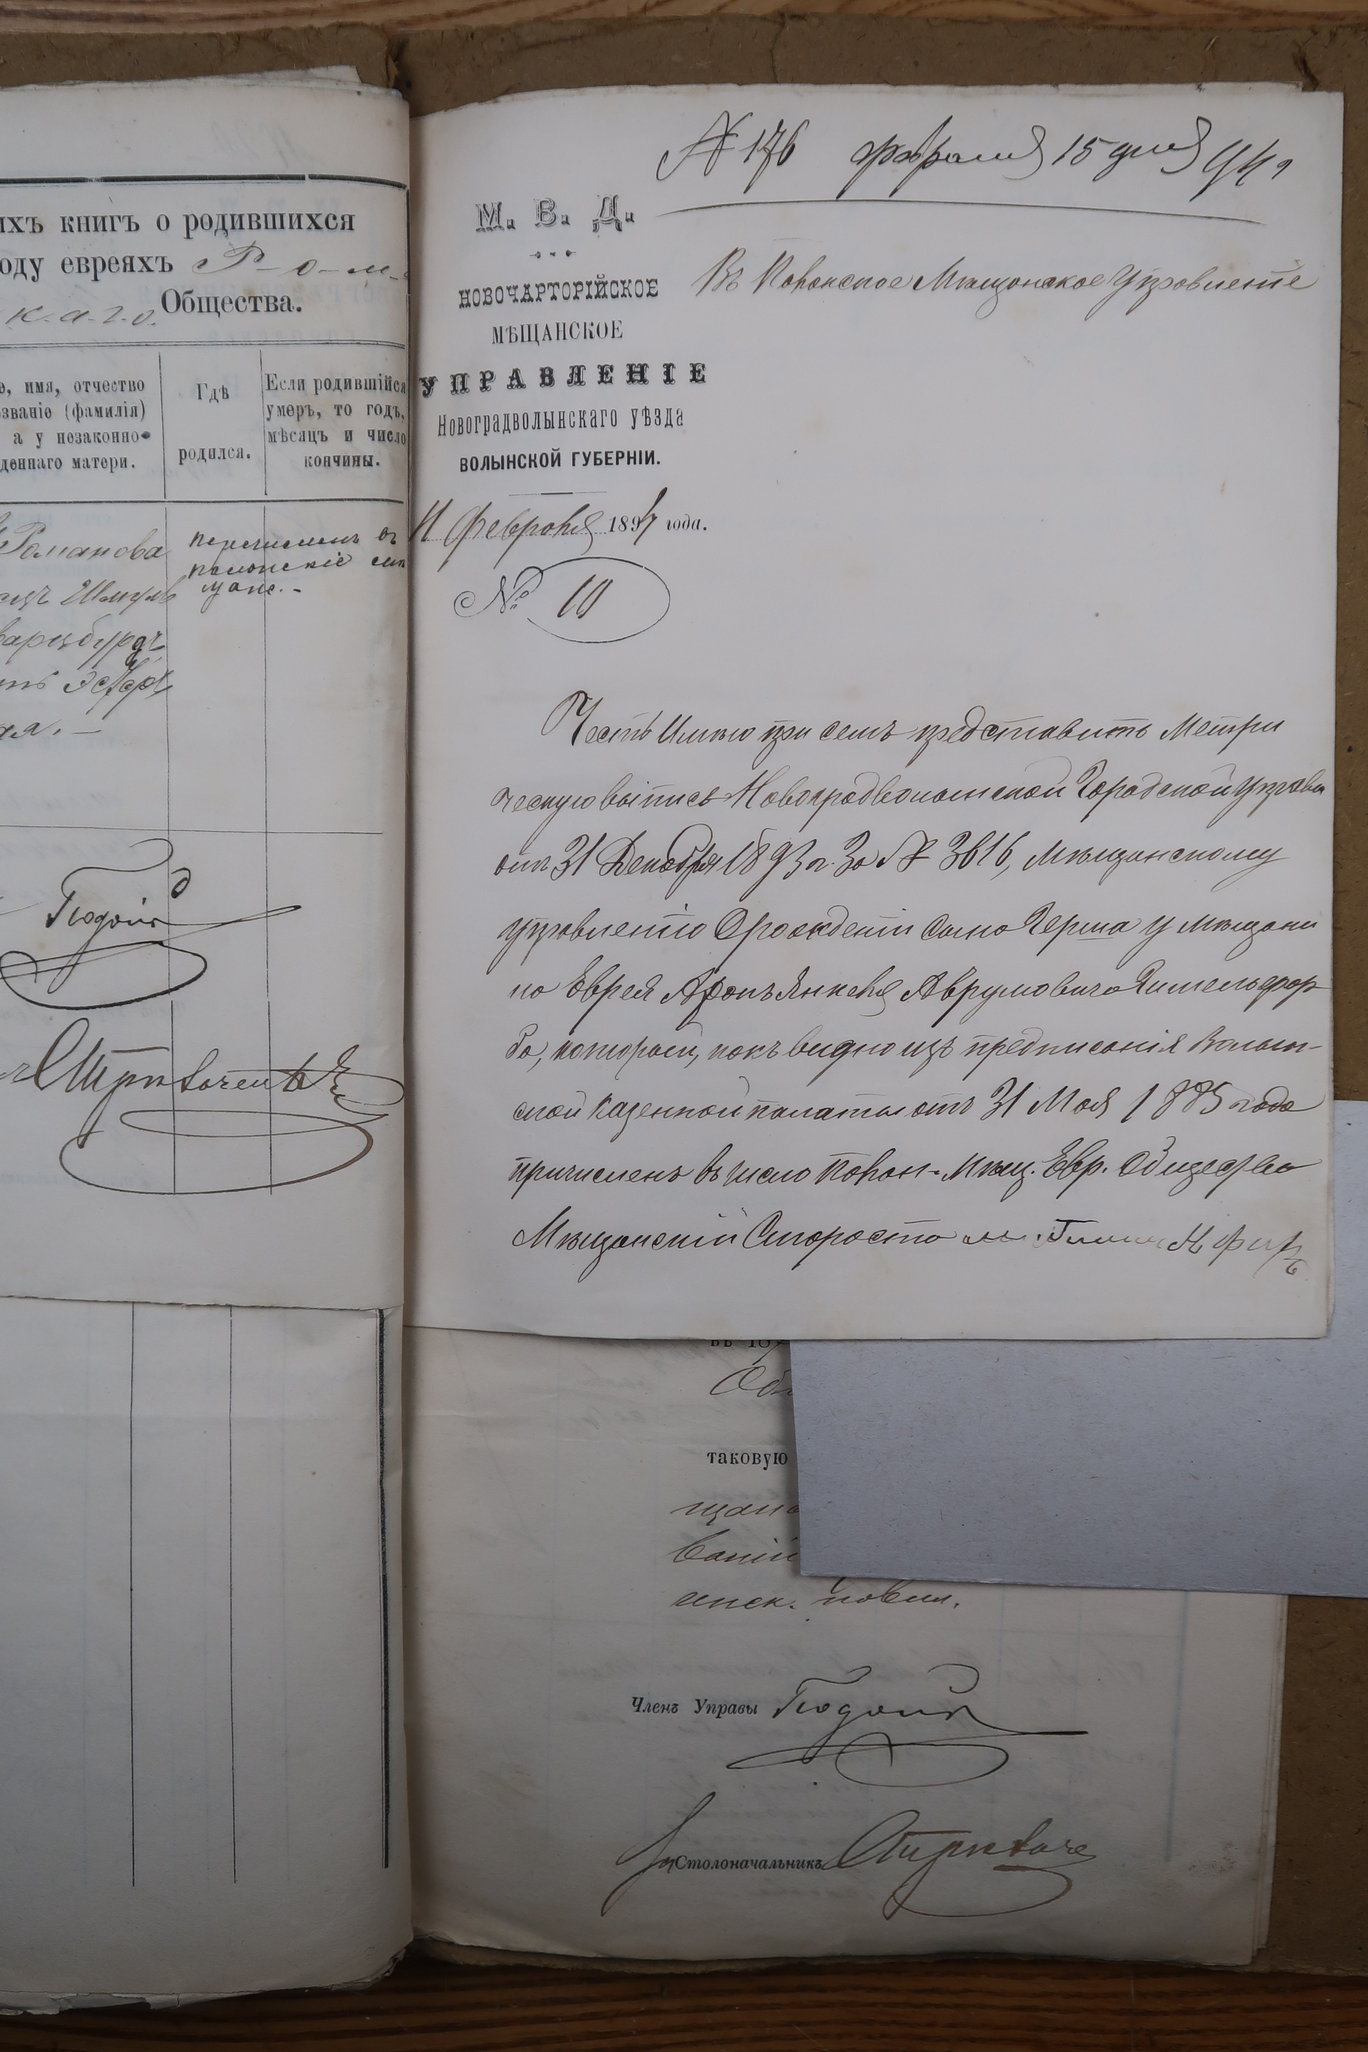 ихъ книгъ о родившихся
оду евреяхъ Р-о-м-
к.а.г.о. Общества.
е, имя, отчество
званіе (фамилія)
а у незаконно-
деннаго матери.
Гдѣ
родился.
Если родившійся
умеръ, то годъ,
мѣсяцъ и число
кончины.
Романова
Шмуль
варцбурдъ
Эстеръ
перечисленъ въ
полонскіе мѣ
щане.-
№ 176 февраля 15 дня 94 г
М. В. Д.
НОВОЧАРТОРІЙСКОЕ
МѢЩАНСКОЕ
УПРАВЛЕНІЕ
Новоградволынскаго уѣзда
ВОЛЫНСКОЙ ГУБЕРНІИ.
11 Февраля 1894 года.
№ 10
Въ Полонское Мѣщанское Управленіе
Честь Имѣю при семъ представить Метри
ческую выпись Новоградволынской Городской Управы
отъ 31 Декабря 1893 г. За № 3616, Мѣщанскому
управленію О рожденіи Сына Герша у мѣщани
на Еврея Аронъ Янкеля Аврумовича Гительфар
ба, который, какъ видно изъ предписанія Волын-
ской Казенной палаты отъ 31 Мая 1885 года
причисленъ въ число Полон. Мѣщ. Евр. Общества
Мѣщанскій Староста
въ 18
Об
таковую
щан
ваній
инск. повин.
Членъ Управы
Столоначальникъ